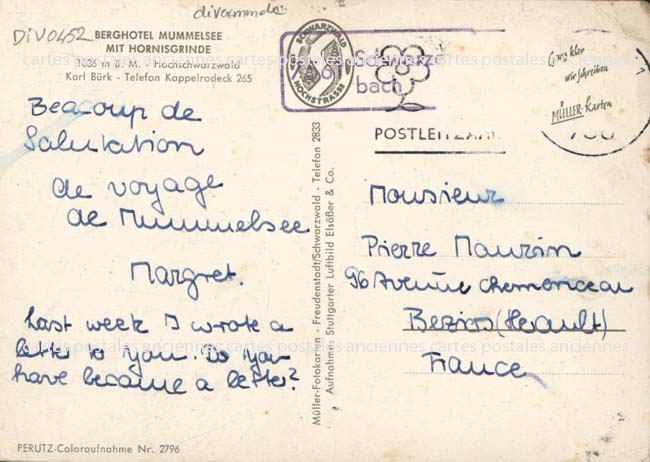 DIV0452
BERGHOTEL MUMMELSEE
MIT HORNISGRINDE
1036 m ü. M. - Hochschwarzwald
Karl Bürk - Telefon Kappelrodeck 265
SCHWARZWALD
HOCHSTRASSE
bach
POSTLEITZAHL
Ganz klar
wir schreiben
MÜLLER-Karten
cartes postales anciennes cartes postales anciennes cartes postales anciennes
Beacoup de
Salutation
de voyage
de Mummelsee
Margret.
Last week I wrote a
letter to you. Do you
have became a letter?
Müller-Fotokarten - Freudenstadt/Schwarzwald - Telefon 2833
Aufnahme: Stuttgarter Luftbild Elsäßer & Co.
Monsieur
Pierre Maurin
96 Avenue
Beziers (Herault)
France
cartes postales anciennes cartes postales anciennes cartes postales anciennes
PERUTZ-Coloraufnahme Nr. 2796